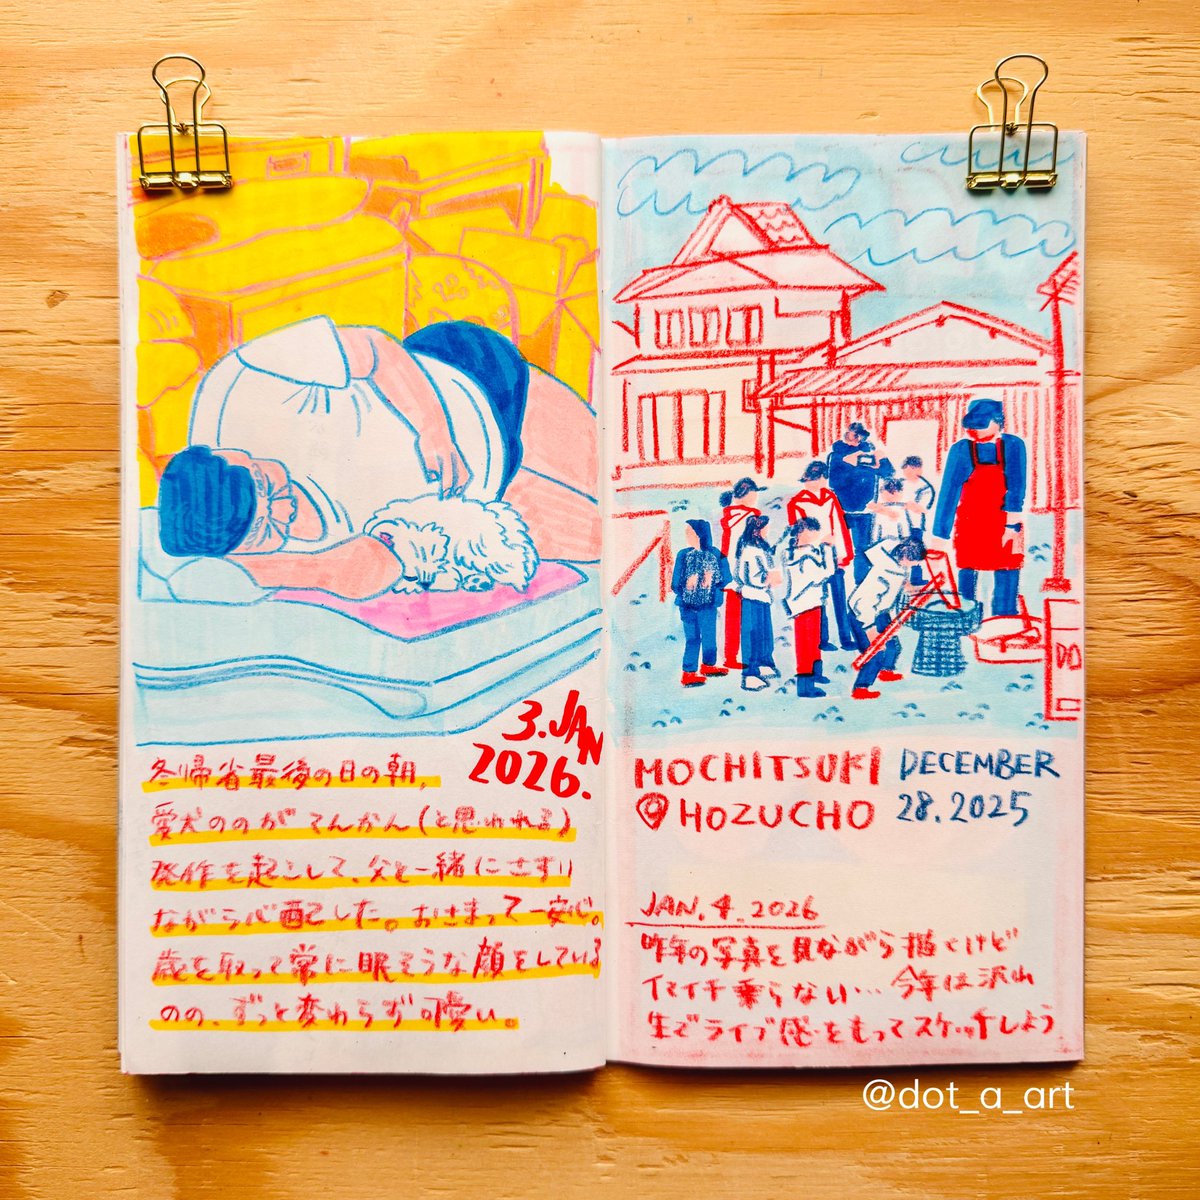 3.JAN
2026.
冬帰省最後の日の朝、
愛犬ののが てんかん(と思われる)
発作を起こして、父と一緒にさすり
ながら心配した。おさまって一安心。
歳を取って常に眠そうな顔をしている
のの、ずっと変わらず可愛い。
MOCHITSUKI
HOZUCHO
DECEMBER
28.2025
JAN.4.2026
昨年の写真を見ながら描くけど
イマイチ乗らない… 今年は沢山
生でライブ感をもってスケッチしよう
@dot_a_art